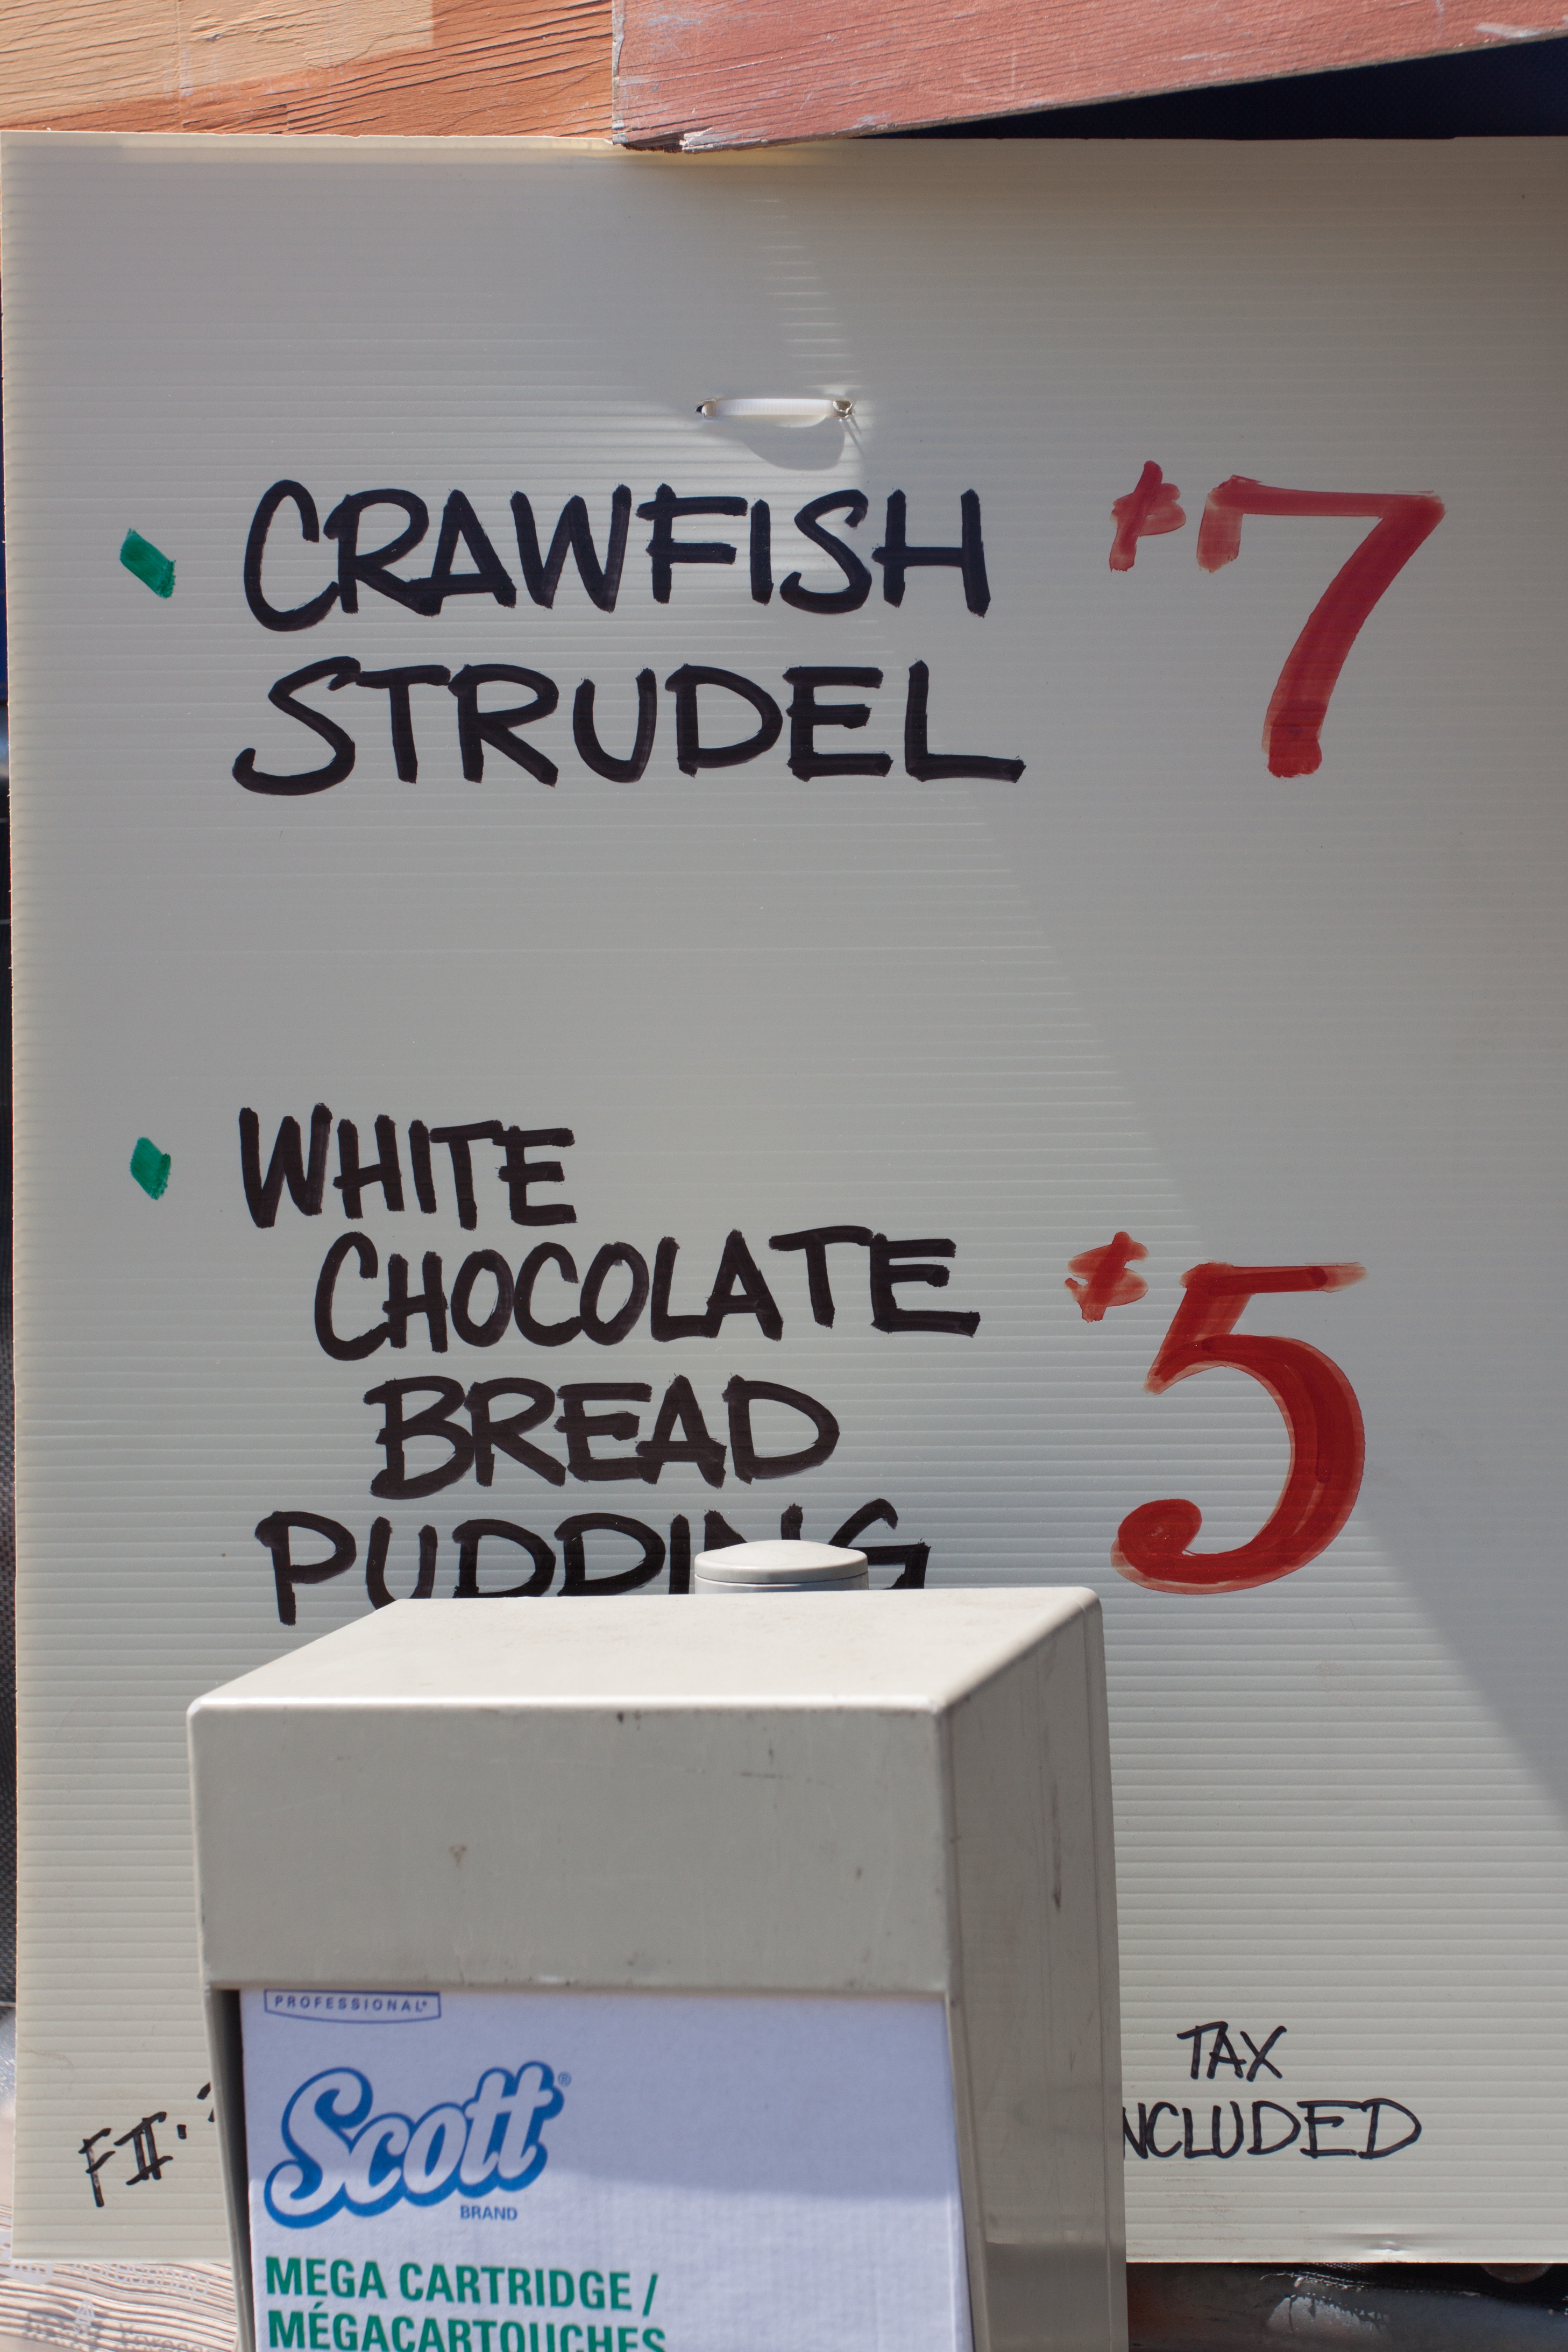 CRAWFISH $7
STRUDEL
WHITE
CHOCOLATE $5
BREAD
PUDDING
TAX
NCLUDED
FII.
PROFESSIONAL*
Scott®
BRAND
MEGA CARTRIDGE /
MÉGACARTOUCHES